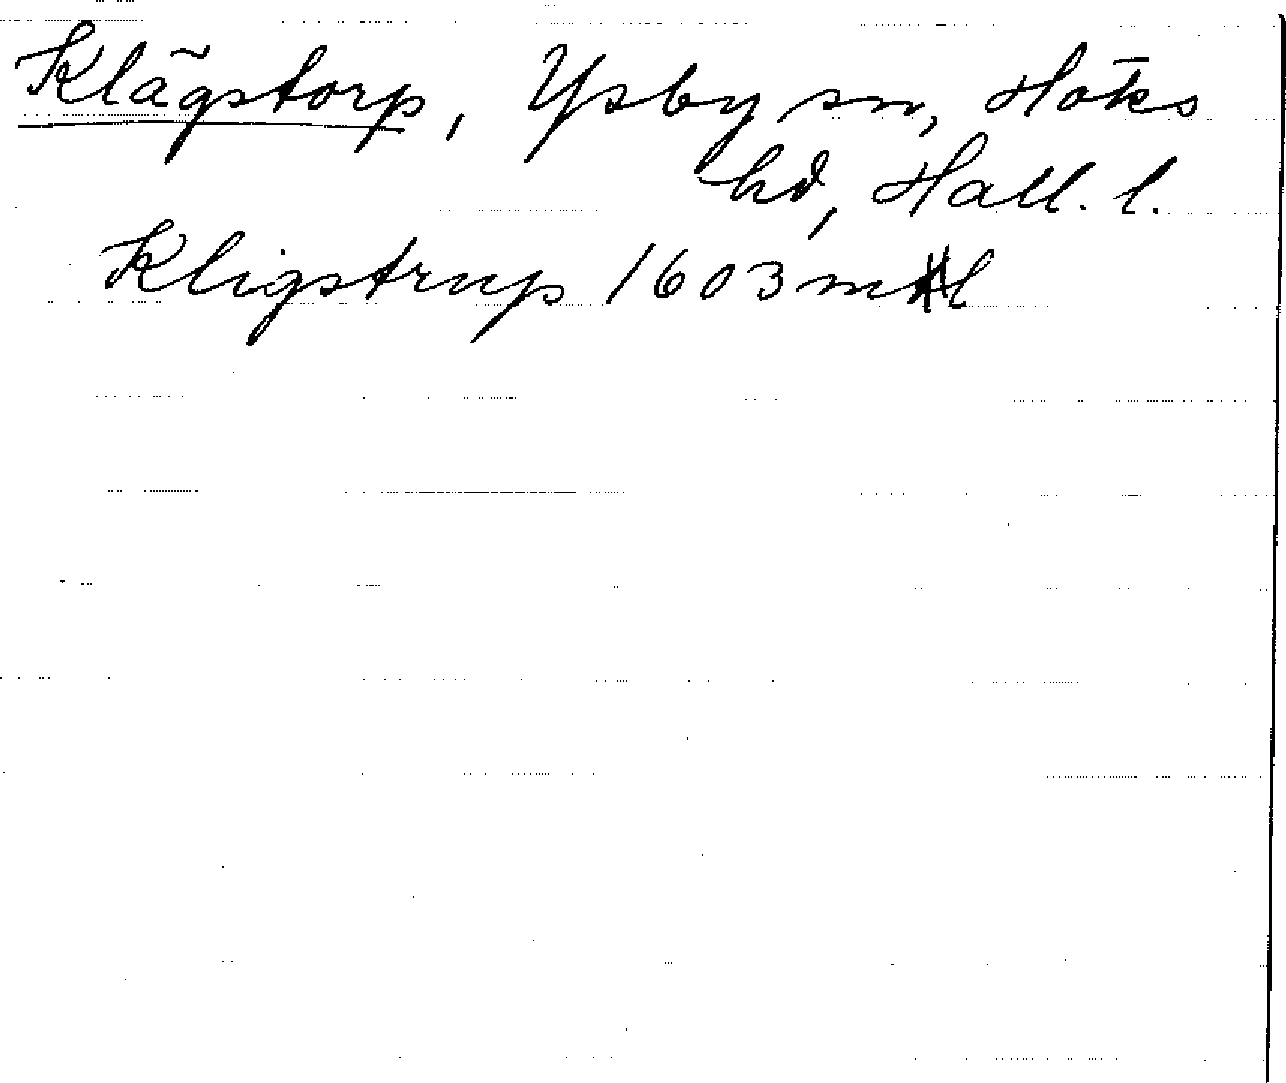 Klägstorp, Ysby sn, Höks
hd, Hall. l.
Kligstrup 1603 ml